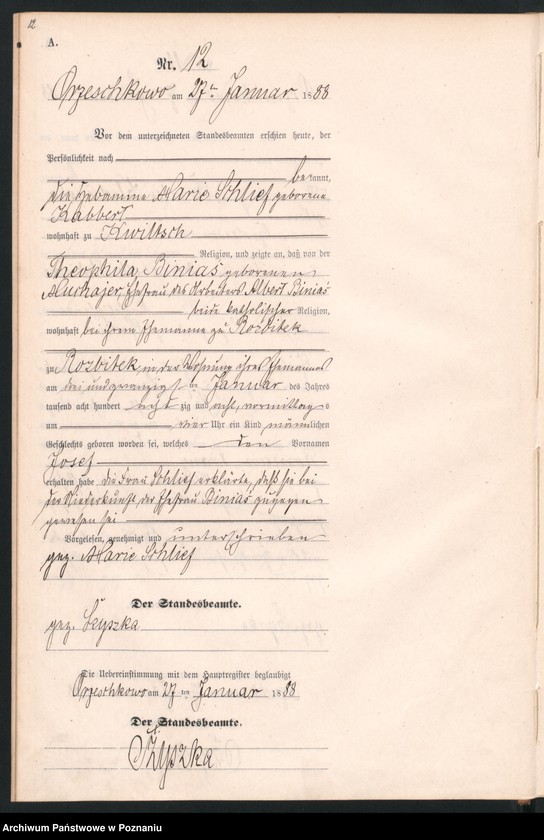 12
A.
Nr. 12
Orzeschkowo am 27ten Januar 1888
Vor dem unterzeichneten Standesbeamten erschien heute, der
Persönlichkeit nach
bekannt,
die Hebamme Marie Schlief geborene
Kabbert
wohnhaft zu Kwiltsch
Religion, und zeigte an, daß von der
Theophila Binias geborenen
Murkajer, Ehefrau des Arbeiters Albert Binias
beide katholischer Religion,
wohnhaft bei ihrem Ehemanne zu Rozbitek
zu Rozbitek in der Wohnung ihres Ehemannes
am drei und zwanzigsten Januar des Jahres
tausend acht hundert achtzig und acht, vormittags
um vier Uhr ein Kind männlichen
Geschlechts geboren worden sei, welches den Vornamen
Josef
erhalten habe die Frau Schlief erklärte, daß sie bei
der Niederkunft der Ehefrau Binias zugegen
gewesen sei
Vorgelesen, genehmigt und unterschrieben
gez. Marie Schlief
Der Standesbeamte.
gez.
Die Uebereinstimmung mit dem Hauptregister beglaubigt
Orzeschkowo am 27ten Januar 1888
Der Standesbeamte.
Archiwum Państwowe w Poznaniu